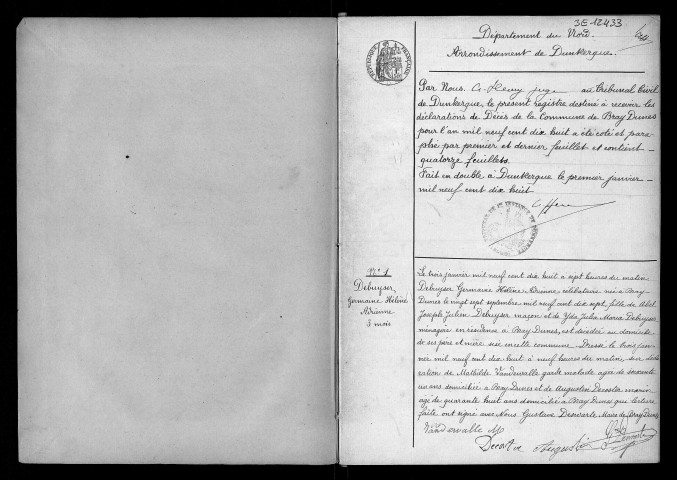 3E-12433
Département du Nord.
Arrondissement de Dunkerque.
RÉPUBLIQUE FRANÇAISE
Par Nous, juge au Tribunal Civil
de Dunkerque, le présent registre destiné à recevoir les
déclarations de Décès de la Commune de Bray Dunes
pour l'an mil neuf cent dix huit a été coté et para
phé par premier et dernier feuillet et contient
quatorze feuillets.
Fait en double à Dunkerque le premier janvier
mil neuf cent dix huit
N° 1
Debuyser
Germaine Hélène
Adrienne
3 mois
Le trois janvier mil neuf cent dix huit à sept heures du matin
Debuyser Germaine Hélène Adrienne célibataire née à Bray
Dunes le vingt sept septembre mil neuf cent dix sept, fille de Abel
Joseph Julien Debuyser maçon et de Ida Julia Maria Debuyser
ménagère en résidence à Bray Dunes, est décédée au domicile
de ses père et mère sise en cette commune. Dressé le trois jan
vier mil neuf cent dix huit à neuf heures du matin sur décla
ration de Mathilde Vandewalle garde malade agée de soixante
un ans domiciliée à Bray Dunes et de Augustin Decoster marin
agé de quarante huit ans domicilié à Bray Dunes que lecture
faite ont signé avec Nous Gustave Maire de Bray Dunes
Vandervalle M